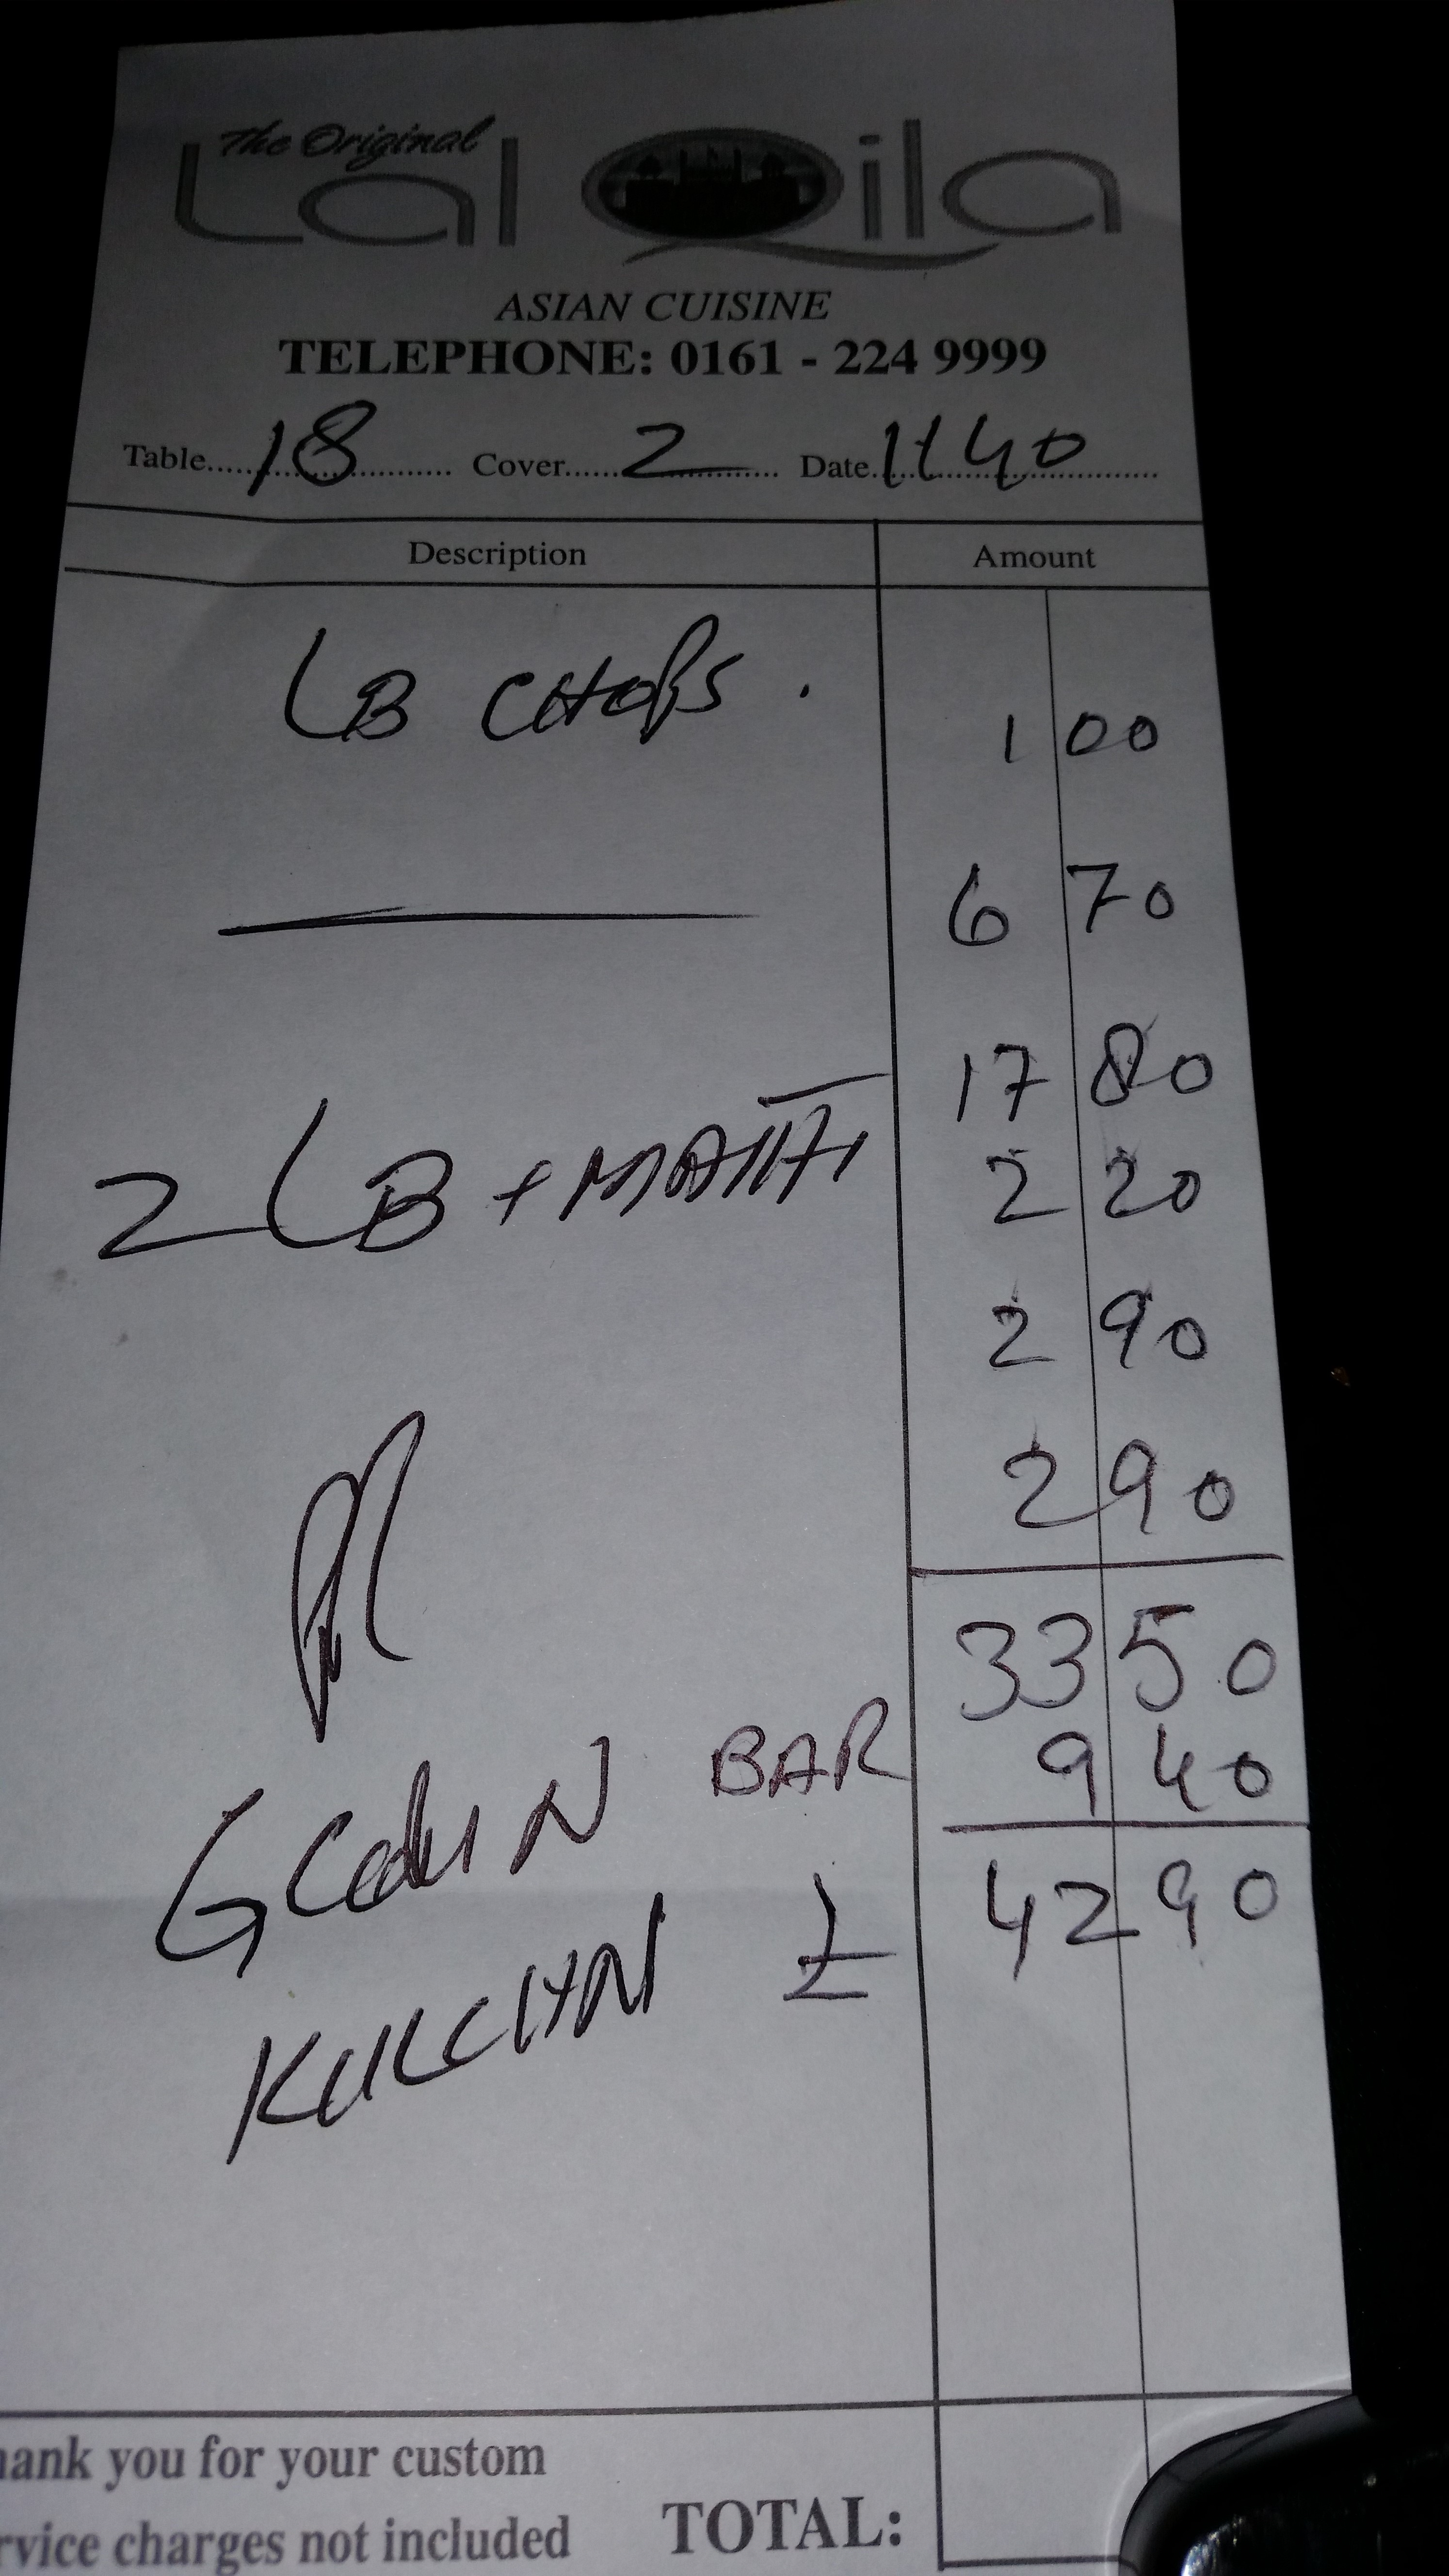 The Original
Lal Qila
ASIAN CUISINE
TELEPHONE: 0161 - 224 9999
Table 18 Cover 2 Date 1140
Description Amount
LB CHOPS . 1 00
6 70
17 80
2 LB + MATTH 2 20
2 90
2 90
33 50
BAR 9 40
£ 42 90
hank you for your custom
rvice charges not included
TOTAL: